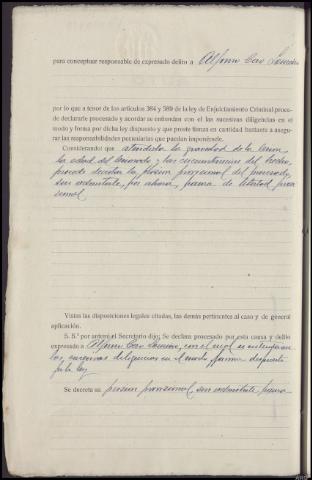 para conceptuar responsable de expresado delito a Alfonso Caro
por lo que a tenor de los artículos 384 y 589 de la ley de Enjuiciamiento Criminal proce-
de declararle procesado y acordar se entiendan con él las sucesivas diligencias en el
modo y forma por dicha ley dispuesto y que preste fianza en cantidad bastante a asegu-
rar las responsabilidades pecuniarias que puedan imponérsele.
Considerando que atendida la gravedad de la
la edad del procesado y las circunstancias del hecho,
procede decretar la prision provisional del procesado,
sin embargo, por ahora, de libertad provi
sional
Vistas las disposiciones legales citadas, las demás pertinentes al caso y de general
aplicación.
S. S.ª por ante mí el Secretario dijo: Se declara procesado por esta causa y delito
expresado a Alfonso Caro, con el cual se entiendan
las sucesivas diligencias en el modo y forma dispuesto
por la ley
Se decreta su prision provisional,